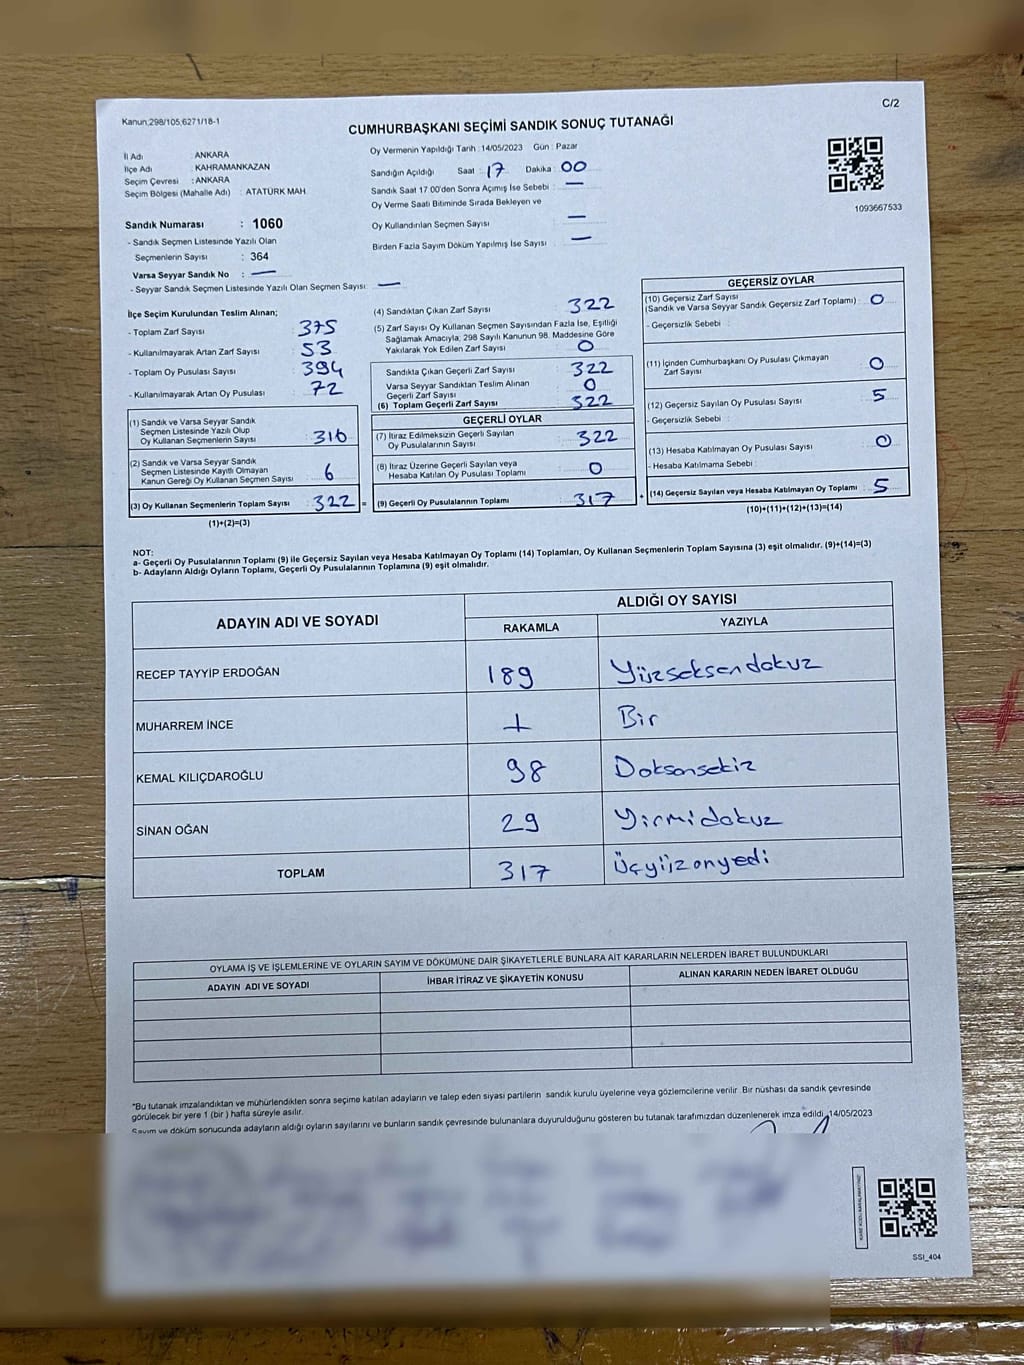 Kanun:298/105,6271/18-1
C/2
CUMHURBAŞKANI SEÇİMİ SANDIK SONUÇ TUTANAĞI
İl Adı : ANKARA
İlçe Adı : KAHRAMANKAZAN
Seçim Çevresi : ANKARA
Seçim Bölgesi (Mahalle Adı) : ATATÜRK MAH.
Oy Vermenin Yapıldığı Tarih :14/05/2023 Gün : Pazar
Sandığın Açıldığı Saat : 17 Dakika : 00
Sandık Saat 17.00'den Sonra Açımış İse Sebebi : —
Oy Verme Saati Bitiminde Sırada Bekleyen ve
Oy Kullandırılan Seçmen Sayısı : —
Birden Fazla Sayım Döküm Yapılmış İse Sayısı : —
1093667533
Sandık Numarası : 1060
- Sandık Seçmen Listesinde Yazılı Olan
Seçmenlerin Sayısı : 364
Varsa Seyyar Sandık No : —
- Seyyar Sandık Seçmen Listesinde Yazılı Olan Seçmen Sayısı: —
İlçe Seçim Kurulundan Teslim Alınan;
- Toplam Zarf Sayısı : 375
- Kullanılmayarak Artan Zarf Sayısı : 53
- Toplam Oy Pusulası Sayısı : 394
- Kullanılmayarak Artan Oy Pusulası : 72
(1) Sandık ve Varsa Seyyar Sandık
Seçmen Listesinde Yazılı Olup
Oy Kullanan Seçmenlerin Sayısı : 316
(2) Sandık ve Varsa Seyyar Sandık
Seçmen Listesinde Kayıtlı Olmayan
Kanun Gereği Oy Kullanan Seçmen Sayısı : 6
(3) Oy Kullanan Seçmenlerin Toplam Sayısı : 322 =
(1)+(2)=(3)
(4) Sandıktan Çıkan Zarf Sayısı : 322
(5) Zarf Sayısı Oy Kullanan Seçmen Sayısından Fazla İse, Eşitliği
Sağlamak Amacıyla; 298 Sayılı Kanunun 98. Maddesine Göre
Yakılarak Yok Edilen Zarf Sayısı : 0
Sandıkta Çıkan Geçerli Zarf Sayısı : 322
Varsa Seyyar Sandıktan Teslim Alınan
Geçerli Zarf Sayısı : 0
(6) Toplam Geçerli Zarf Sayısı : 322
GEÇERLİ OYLAR
(7) İtiraz Edilmeksizin Geçerli Sayılan
Oy Pusulalarının Sayısı : 322
(8) İtiraz Üzerine Geçerli Sayılan veya
Hesaba Katılan Oy Pusulası Toplamı : 0
(9) Geçerli Oy Pusulalarının Toplamı : 317 +
GEÇERSİZ OYLAR
(10) Geçersiz Zarf Sayısı
(Sandık ve Varsa Seyyar Sandık Geçersiz Zarf Toplamı) : 0
- Geçersizlik Sebebi :
(11) İçinden Cumhurbaşkanı Oy Pusulası Çıkmayan
Zarf Sayısı : 0
(12) Geçersiz Sayılan Oy Pusulası Sayısı : 5
- Geçersizlik Sebebi :
(13) Hesaba Katılmayan Oy Pusulası Sayısı : 0
- Hesaba Katılmama Sebebi :
(14) Geçersiz Sayılan veya Hesaba Katılmayan Oy Toplamı : 5
(10)+(11)+(12)+(13)=(14)
NOT:
a- Geçerli Oy Pusulalarının Toplamı (9) ile Geçersiz Sayılan veya Hesaba Katılmayan Oy Toplamı (14) Toplamları, Oy Kullanan Seçmenlerin Toplam Sayısına (3) eşit olmalıdır. (9)+(14)=(3)
b- Adayların Aldığı Oyların Toplamı, Geçerli Oy Pusulalarının Toplamına (9) eşit olmalıdır.
ADAYIN ADI VE SOYADI ALDIĞI OY SAYISI
RAKAMLA YAZIYLA
RECEP TAYYİP ERDOĞAN 189 Yüzseksendokuz
MUHARREM İNCE 1 Bir
KEMAL KILIÇDAROĞLU 98 Doksansekiz
SİNAN OĞAN 29 Yirmidokuz
TOPLAM 317 Üçyüzonyedi
OYLAMA İŞ VE İŞLEMLERİNE VE OYLARIN SAYIM VE DÖKÜMÜNE DAİR ŞİKAYETLERLE BUNLARA AİT KARARLARIN NELERDEN İBARET BULUNDUKLARI
ADAYIN ADI VE SOYADI İHBAR İTİRAZ VE ŞİKAYETİN KONUSU ALINAN KARARIN NEDEN İBARET OLDUĞU
*Bu tutanak imzalandıktan ve mühürlendikten sonra seçime katılan adayların ve talep eden siyasi partilerin sandık kurulu üyelerine veya gözlemcilerine verilir. Bir nüshası da sandık çevresinde
görülecek bir yere 1 (bir) hafta süreyle asılır.
Sayım ve döküm sonucunda adayların aldığı oyların sayılarını ve bunların sandık çevresinde bulunanlara duyurulduğunu gösteren bu tutanak tarafımızdan düzenlenerek imza edildi. 14/05/2023
SSI_404